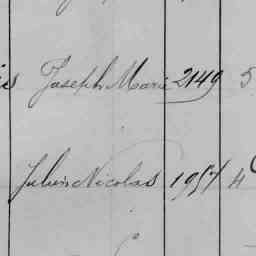 Joseph Marie 2149 5
Julien Nicolas 1957 4